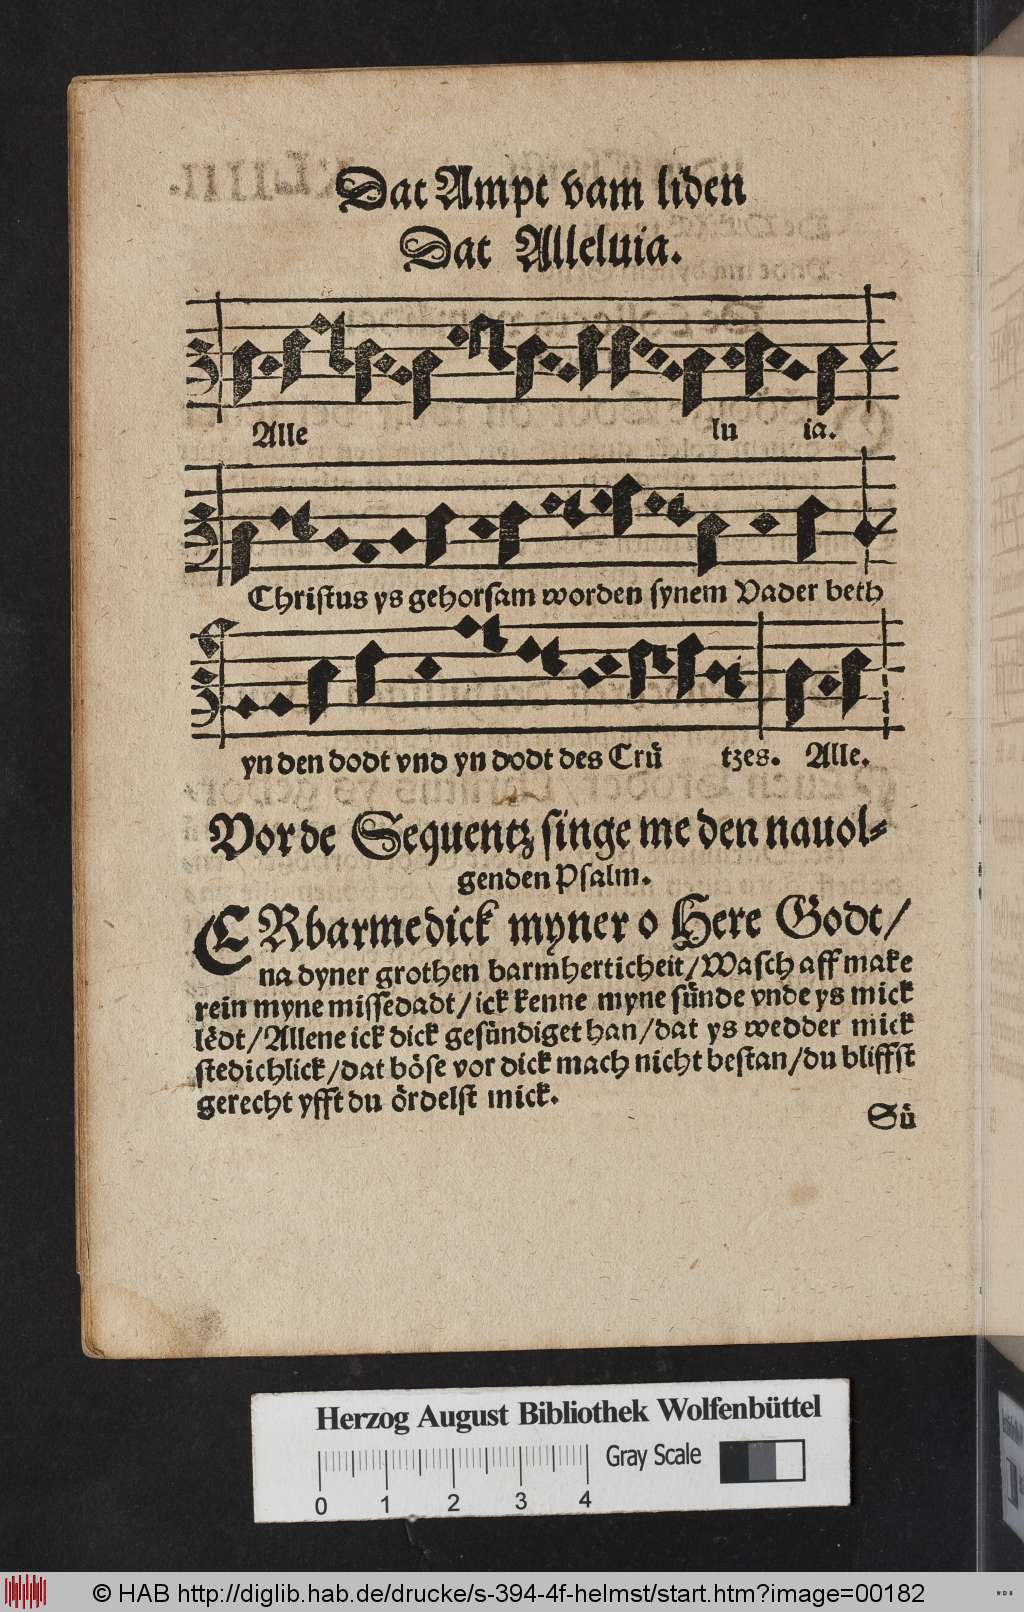 Dat Ampt vam liden
Dat Alleluia.
Alle lu ia.
Christus ys gehorsam worden synem Vader beth
yn den dodt vnd yn dodt des Crü tzes. Alle.
Vor de Sequentz singe me den nauol-
genden Psalm.
ERbarme dick myner o Here Godt/
na dyner grothen barmherticheit/Wasch aff make
rein myne missedadt/ick kenne myne sünde vnde ys mick
lêdt/Allene ick dick gesündiget han/dat ys wedder mick
stedichlick/dat böse vor dick mach nicht bestan/du bliffst
gerecht yfft du ördelst mick.
Sü
Herzog August Bibliothek Wolfenbüttel
Gray Scale
0 1 2 3 4
© HAB http://diglib.hab.de/drucke/s-394-4f-helmst/start.htm?image=00182